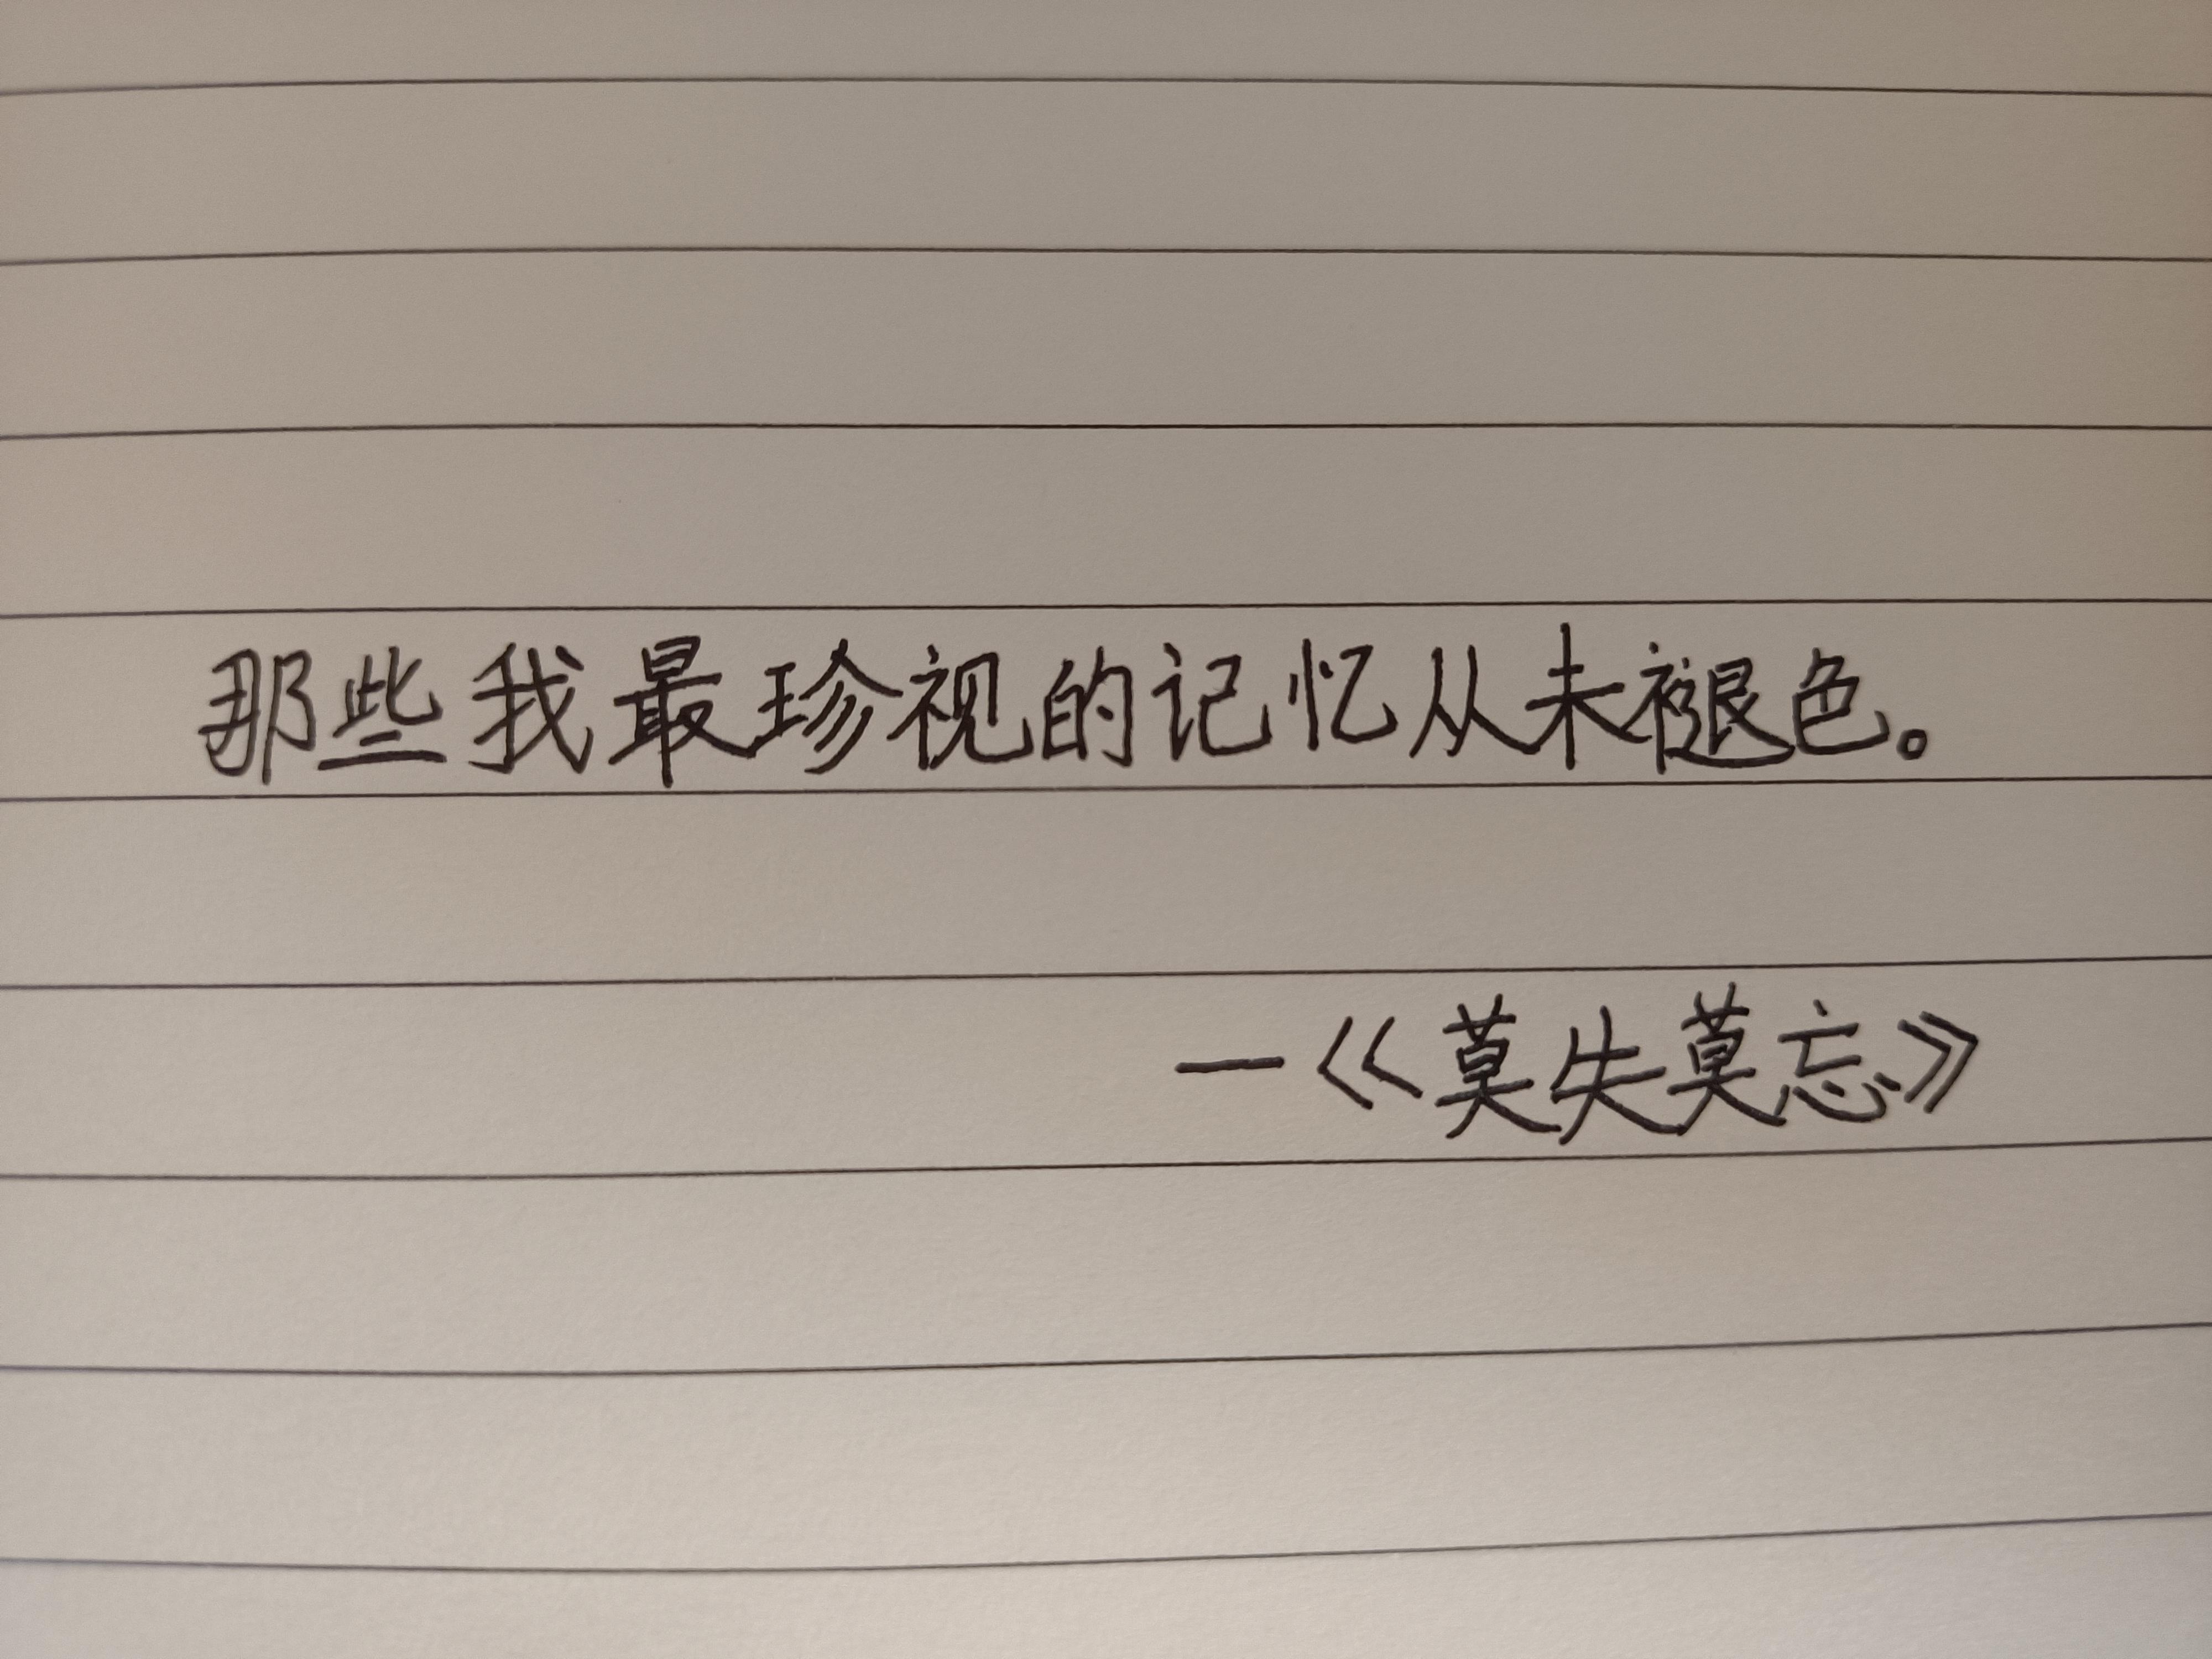 那些我最珍视的记忆从未褪色。
—《莫失莫忘》